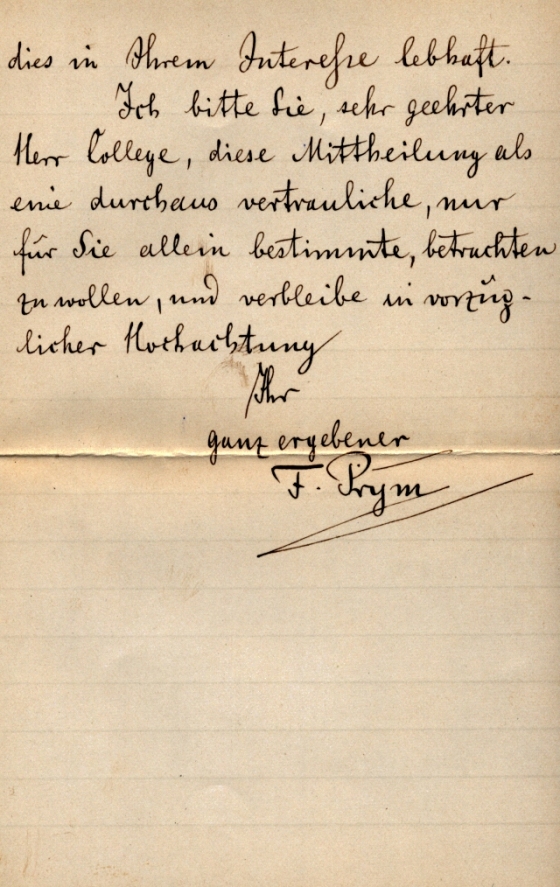 dies in Ihrem Interesse lebhaft.
Ich bitte Sie, sehr geehrter
Herr College, diese Mittheilung als
eine durchaus vertrauliche, nur
für Sie allein bestimmte, betrachten
zu wollen, und verbleibe in vorzüg-
licher Hochachtung
Ihr
ganz ergebener
F. Prym